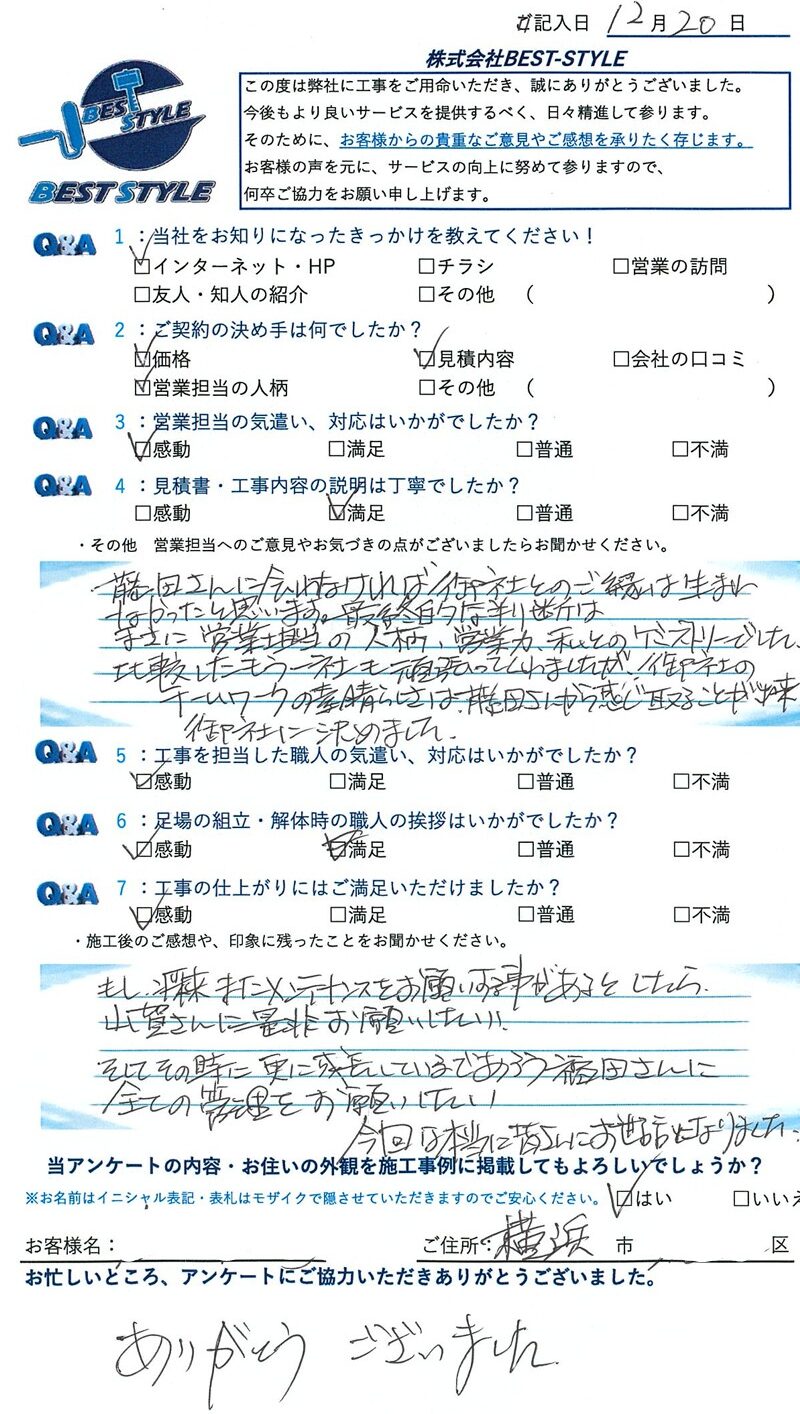 ご記入日 12月20日
株式会社BEST-STYLE
この度は弊社に工事をご用命いただき、誠にありがとうございました。
今後もより良いサービスを提供するべく、日々精進して参ります。
そのために、お客様からの貴重なご意見やご感想を承りたく存じます。
お客様の声を元に、サービスの向上に努めて参りますので、
何卒ご協力をお願い申し上げます。
BEST STYLE
BEST STYLE
Q&A 1：当社をお知りになったきっかけを教えてください！
☑インターネット・HP □チラシ □営業の訪問
□友人・知人の紹介 □その他 （ ）
Q&A 2：ご契約の決め手は何でしたか？
☑価格 ☑見積内容 □会社の口コミ
☑営業担当の人柄 □その他 （ ）
Q&A 3：営業担当の気遣い、対応はいかがでしたか？
☑感動 □満足 □普通 □不満
Q&A 4：見積書・工事内容の説明は丁寧でしたか？
□感動 ☑満足 □普通 □不満
・その他 営業担当へのご意見やお気づきの点がございましたらお聞かせください。
藤田さんに会わなければ御社とのご縁は生まれ
なかったと思います。最終的な判断は
まさに営業担当の人柄、営業力、私とのケミストリーでした。
比較したもう一社も頑張ってくれましたが、御社の
チームワークの素晴らしさは、藤田さんから感じ取ることが出来
御社に決めました。
Q&A 5：工事を担当した職人の気遣い、対応はいかがでしたか？
☑感動 □満足 □普通 □不満
Q&A 6：足場の組立・解体時の職人の挨拶はいかがでしたか？
☑感動 □満足 □普通 □不満
Q&A 7：工事の仕上がりにはご満足いただけましたか？
☑感動 □満足 □普通 □不満
・施工後のご感想や、印象に残ったことをお聞かせください。
もし、将来またメンテナンスをお願いする事があるとしたら、
山賀さんに是非お願いしたい!!
そしてその時に更に成長しているであろう福田さんに
全ての管理をお願いしたい
今回は本当に皆さんにお世話になりました。
当アンケートの内容・お住いの外観を施工事例に掲載してもよろしいでしょうか？
※お名前はイニシャル表記・表札はモザイクで隠させていただきますのでご安心ください。 ☑はい □いいえ
お客様名： ご住所：横浜 市 区
お忙しいところ、アンケートにご協力いただきありがとうございました。
ありがとう ございました